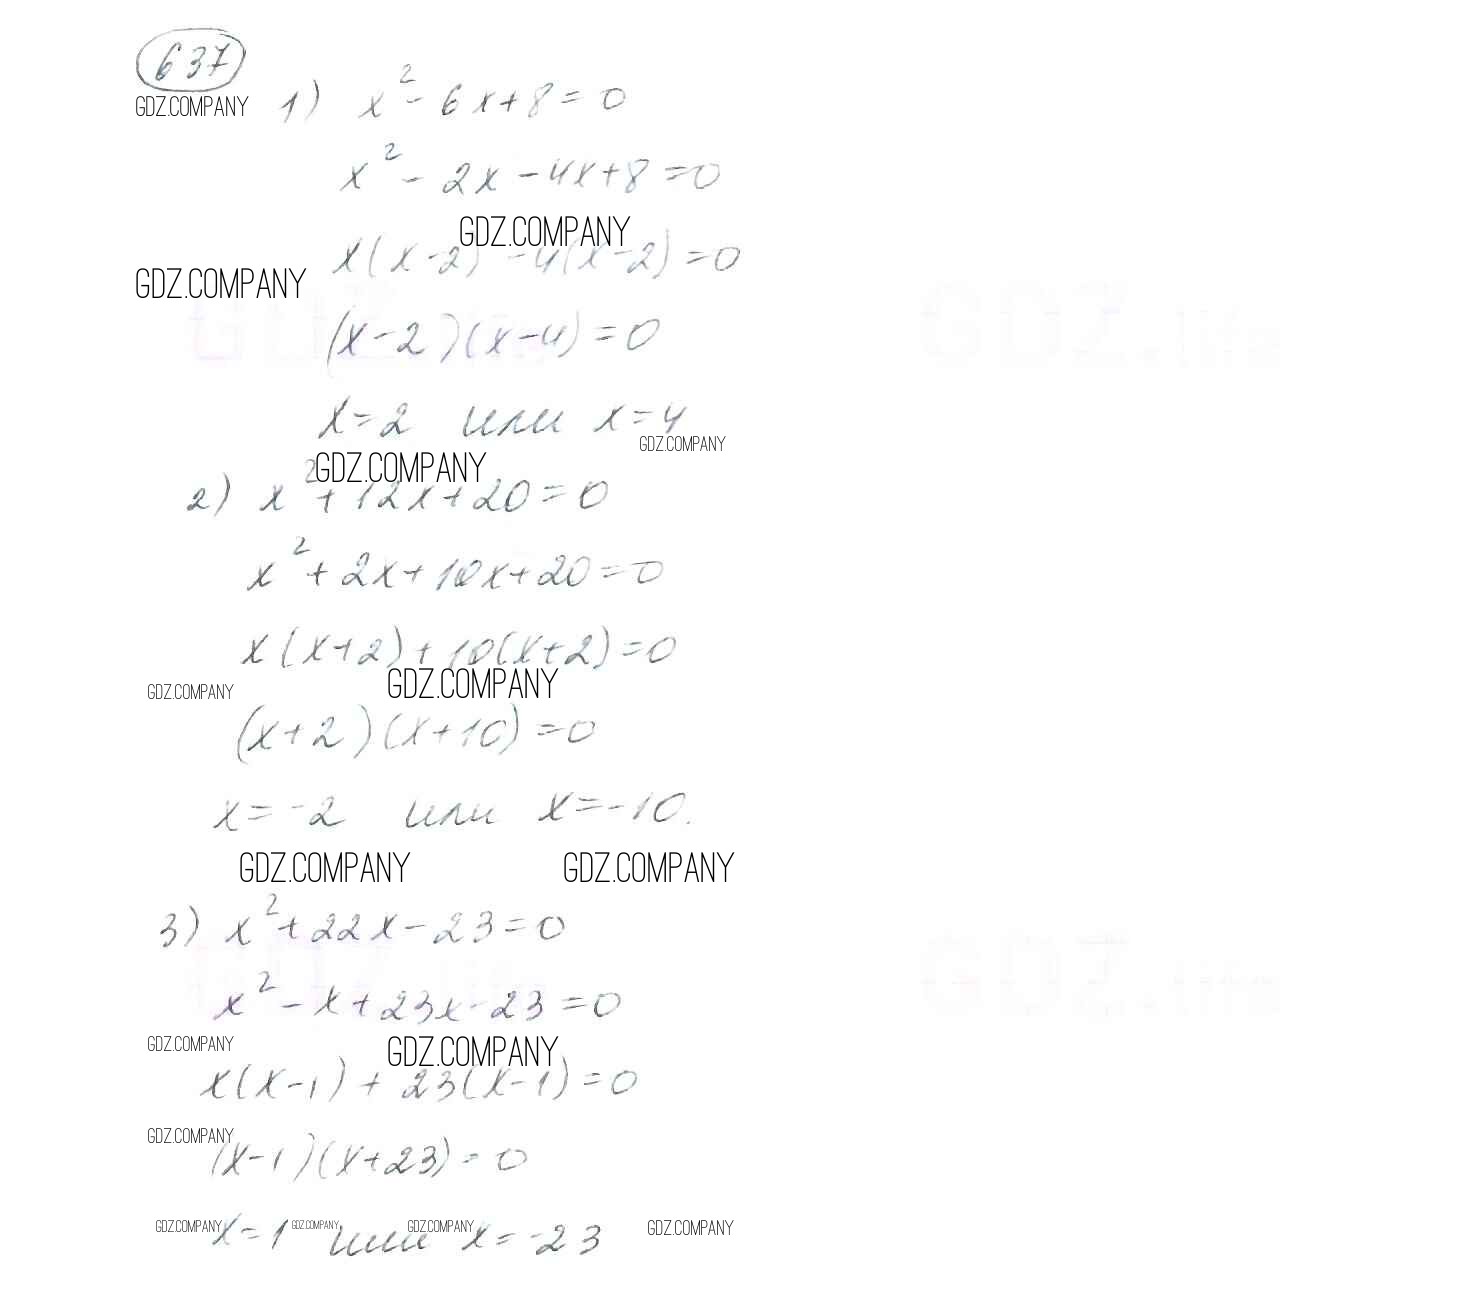 637
GDZ.COMPANY 1) x² - 6x + 8 = 0
x² - 2x - 4x + 8 = 0
GDZ.COMPANY
x(x - 2) - 4(x - 2) = 0
GDZ.COMPANY
GDZ.life GDZ.life
(x - 2)(x - 4) = 0
x = 2 или x = 4
GDZ.COMPANY
GDZ.COMPANY
2) x² + 12x + 20 = 0
x² + 2x + 10x + 20 = 0
x(x + 2) + 10(x + 2) = 0
GDZ.COMPANY GDZ.COMPANY
(x + 2)(x + 10) = 0
x = -2 или x = -10.
GDZ.COMPANY GDZ.COMPANY
3) x² + 22x - 23 = 0
GDZ.life GDZ.life
x² - x + 23x - 23 = 0
GDZ.COMPANY GDZ.COMPANY
x(x - 1) + 23(x - 1) = 0
GDZ.COMPANY
(x - 1)(x + 23) = 0
GDZ.COMPANY GDZ.COMPANY GDZ.COMPANY GDZ.COMPANY
x = 1 или x = -23